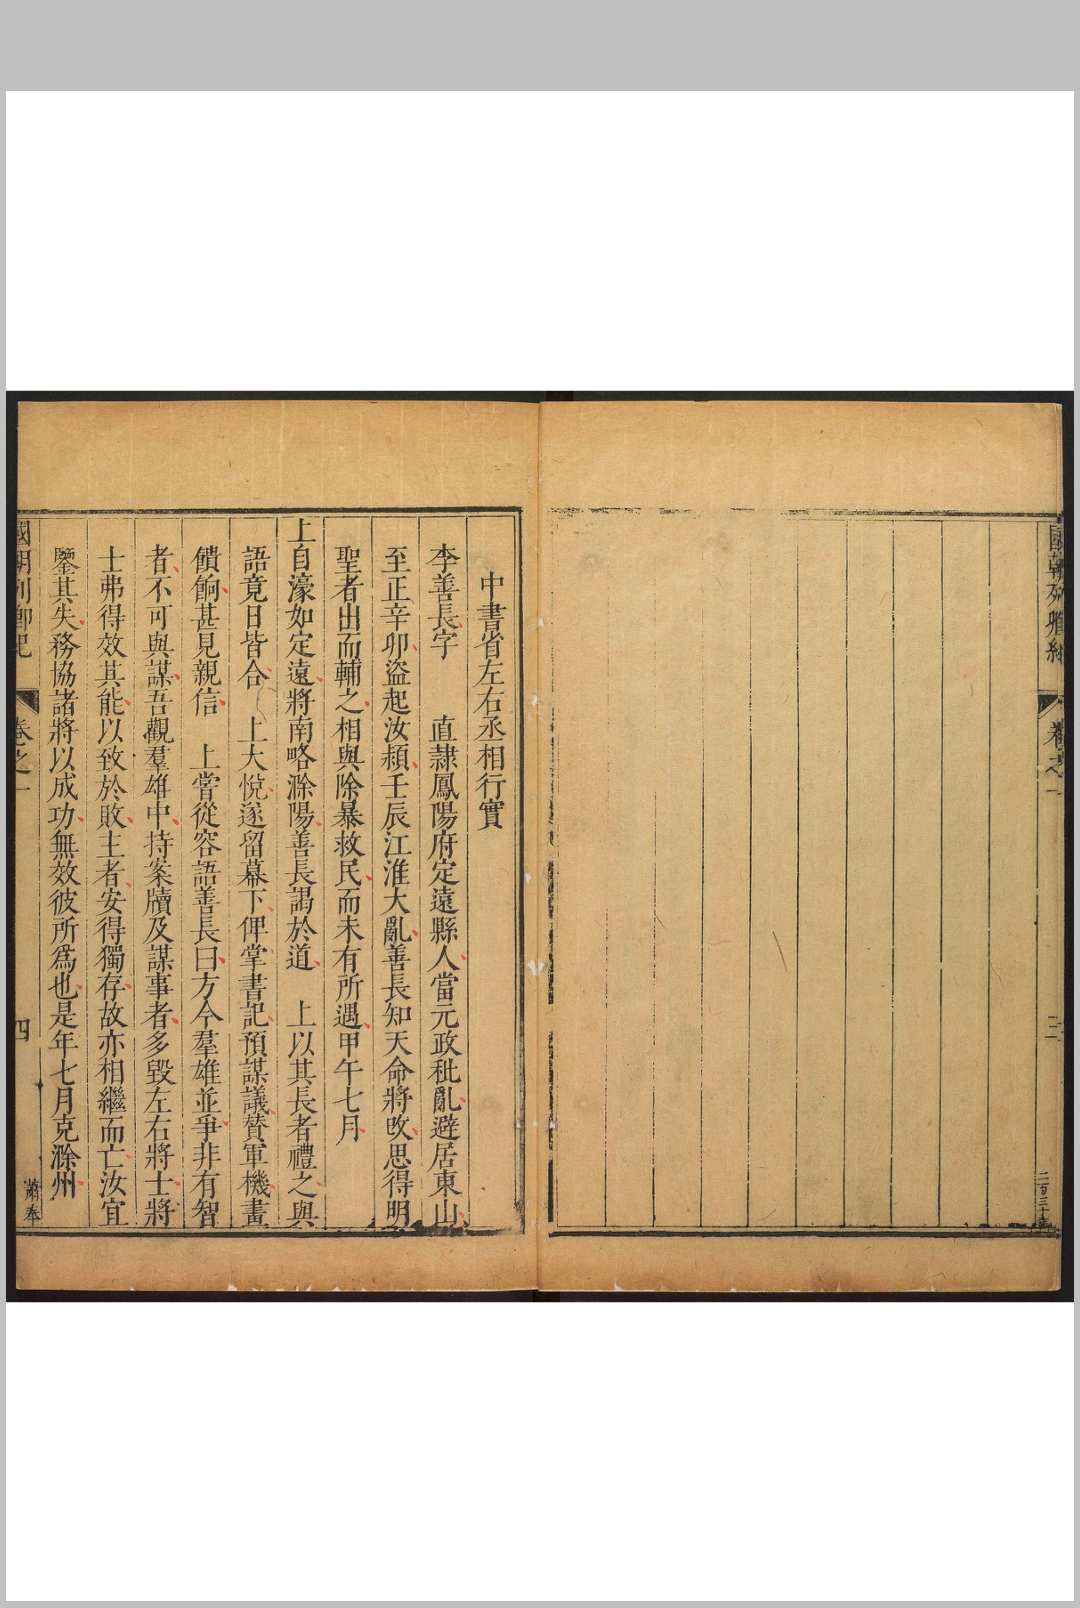 卷之一
二
二百三十
中書省左右丞相行實
李善長字 直隷鳳陽府定遠縣人當元政秕亂避居東山
至正辛卯盜起汝頴壬辰江淮大亂善長知天命將改思得明
聖者出而輔之相與除暴救民而未有所遇甲午七月
上自濠如定遠將南略滁陽善長謁於道 上以其長者禮之與
語竟日皆合 上大悅遂留幕下俾掌書記預謀議贊軍機畫
饋餉甚見親信 上嘗從容語善長曰方今羣雄並爭非有智
者不可與謀吾觀羣雄中持案牘及謀事者多毀左右將士將
士弗得效其能以致於敗主者安得獨存故亦相繼而亡汝宜
鑒其失務協諸將以成功無效彼所爲也是年七月克滁州
國朝列卿紀
卷之一
四